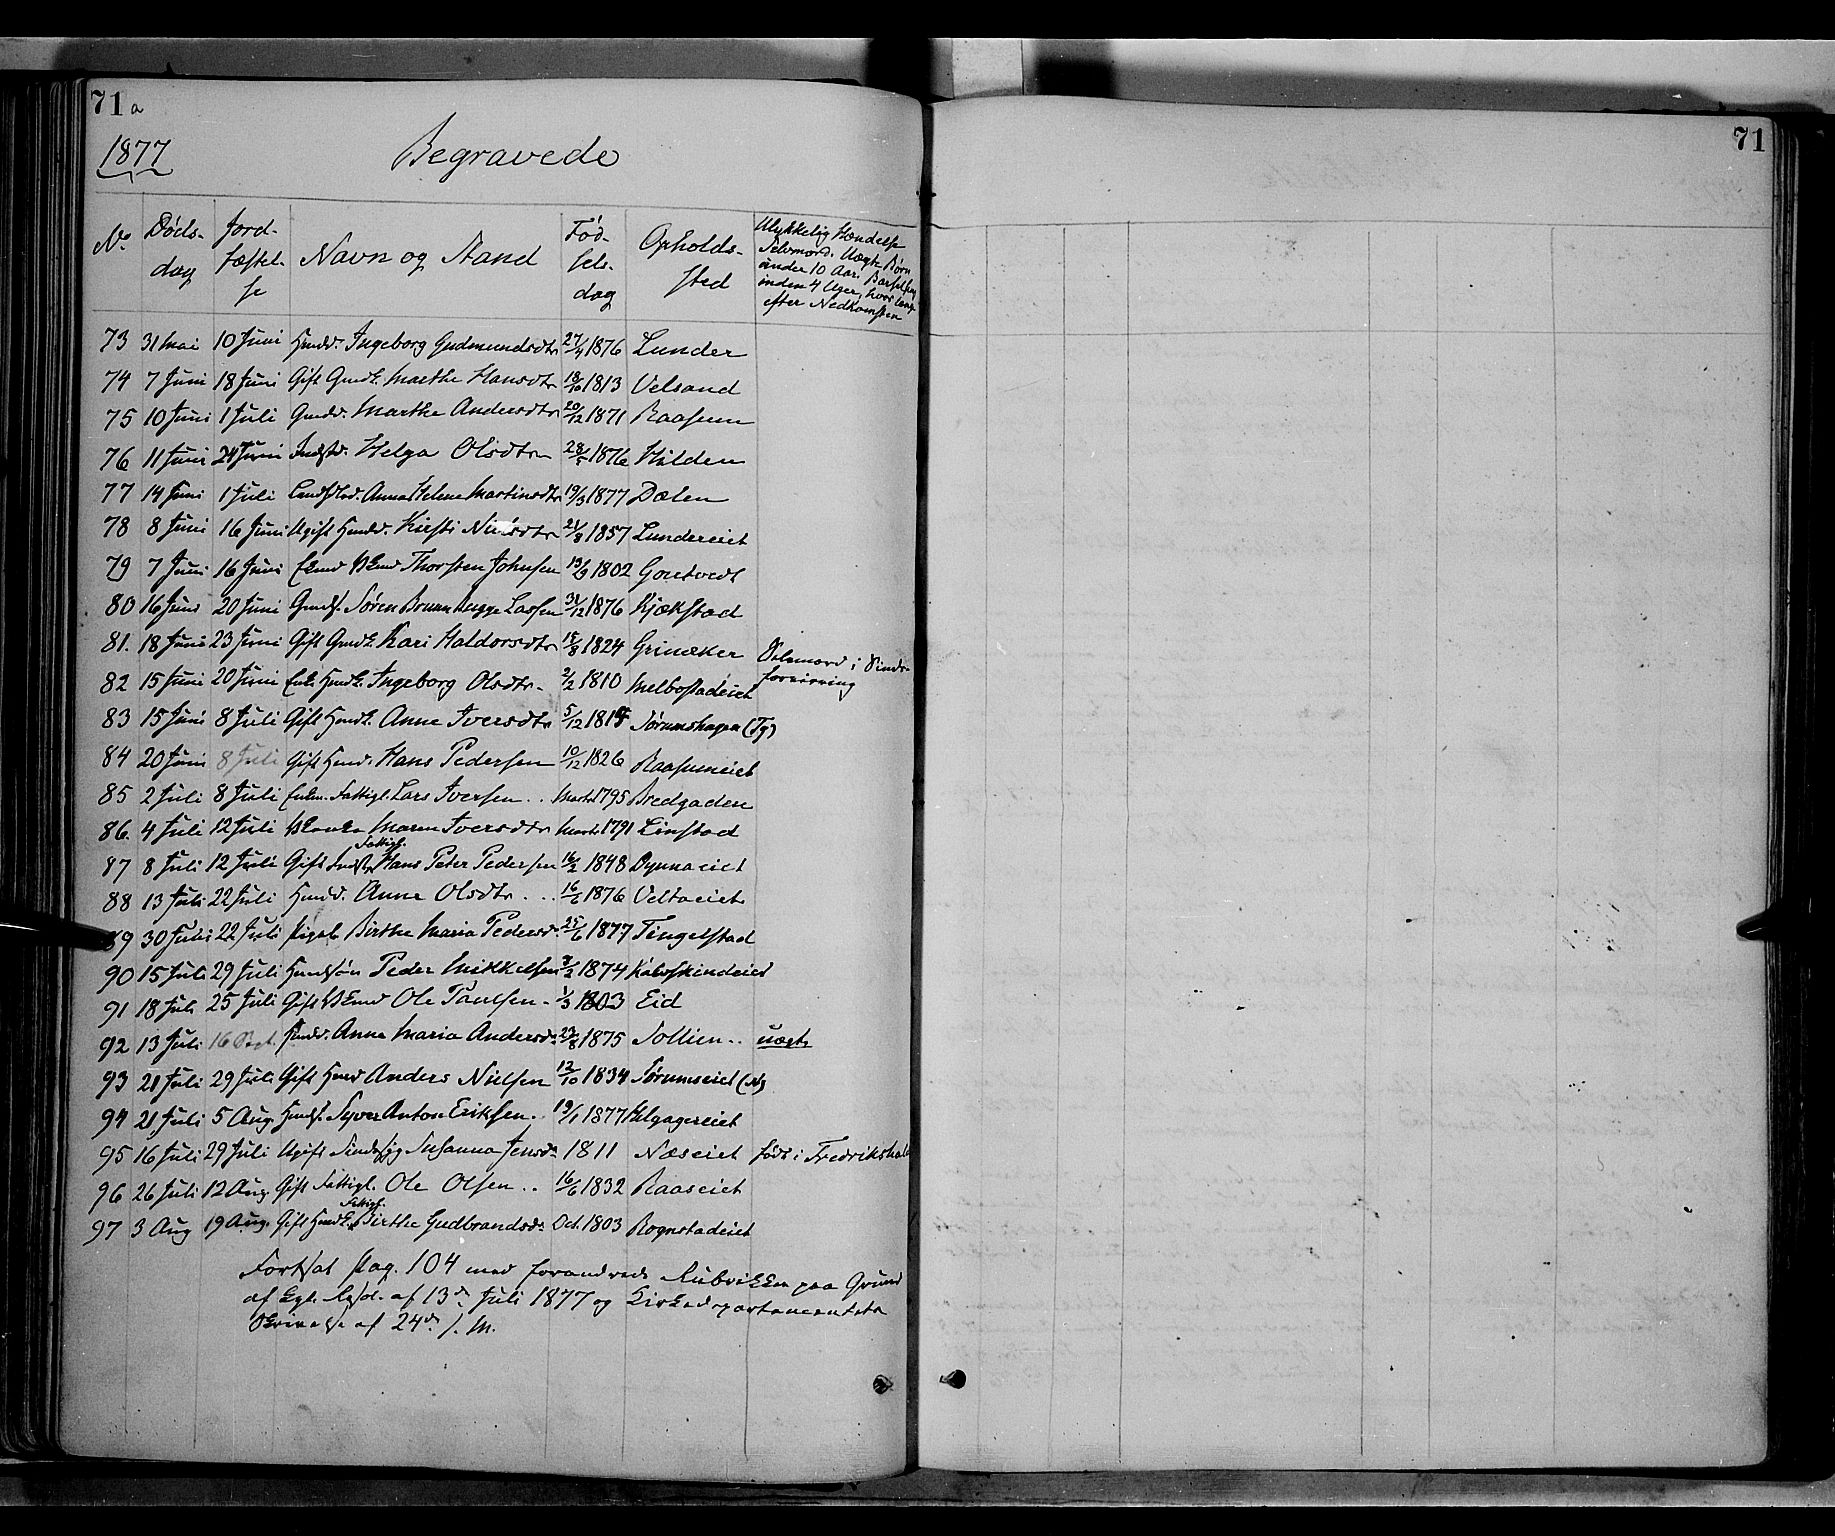 71a
71
1877 Begravede
No. Døds-dag Jord-fæstel-se Navn og Stand Fød-sels-dag Opholds-sted Ulykkelig Hændelse Selvmord. Uægte Børn under 10 Aar. inden 4 Uger, hvor længe efter Nedkomsten
73 31 Mai 10 Juni Husmd. Ingeborg Gudmundsdtr 27/4 1876 Lunder
74 7 Juni 18 Juni Gift Gmdk. Marthe Hansdtr 18/10 1813 Velsand
75 10 Juni 1 Juli Gmdd. Marthe Andersdtr 20/12 1871 Raasum
76 11 Juni 24 Juni Indstd. Helga Olsdtr 1876 Hilden
77 14 Juni 1 Juli Anna Helene Martinsdtr 19/3 1877 Dælen
78 8 Juni 16 Juni Ugift Hmdd. Kirsti Nielsdtr 21/8 1857 Lundereiet
79 7 Juni 16 Juni Thorsten Johnsen 19/9 1802 Goutvedt
80 16 Juni 20 Juni Gmds. Søren Bruun Bugge Lassen 31/12 1876 Kjækstad
81. 18 Juni 23 Juni Gift Gmdk Kari Haldorsdtr 18/8 1824 Grinaker Selvmord i Sinds-forvirring
82 15 Juni 20 Juni Enke Hmdk. Ingeborg Olsdtr. 2/2 1810 Melbostadeiet
83 15 Juni 8 Juli Gift Hmdk. Anne Iversdtr 5/12 1815 Sørumshagen (Tg)
84 20 Juni 8 Juli Gift Hmd. Hans Pedersen 10/12 1826 Raasumeiet
85 2 Juli 8 Juli Enkm. Fattigl. Lars Iversen .. Marts 1795 Bredgaden
86. 4 Juli 12 Juli Maren Iversdtr Marts 1791 Linstad
87 8 Juli 12 Juli Gift Indst Fattigl. Hans Peter Pedersen 16/2 1848 Dynnaeiet
88 13 Juli 22 Juli Hmdd. Anne Olsdtr ... 16/6 1876 Veltaeiet
89 30 Juli 22 Juli Pigeb. Birthe Maria Pedersd. 25/6 1877 Tingelstad
90 15 Juli 29 Juli Hmdsøn Peder Mikkelsen 7/2 1874 Kalvskindeiet
91 18 Juli 25 Juli Gift Ole Paulsen. 1/3 1803 Eid
92 13 Juli 16 Hmdd. Anne Maria Andersd. 29/8 1875 Sollien .. uægte
93 21 Juli 29 Juli Gift Hmd Anders Nielsen 12/10 1834 Sørumseiet (N)
94 21 Juli 5 Aug. Hmds. Syver Anton Eriksen. 19/1 1877 Helgagereiet
95 16 Juli 29 Juli Ugift Sindssyg Susanna Jensd. 1811 Næseiet født i Fredrikshald
96 26 Juli 12 Aug. Gift Fattigl. Ole Olsen .. 16/6 1832 Raaseiet
97 3 Aug 19 Aug. Gift Hmdk. Fattigl. Birthe Gudbrandsd. Oct. 1803 Rognstadeiet
Fortsat Pag. 104 med forandrede Rubrikker paa Grund
af Kgl. Resol. af 13de Juli 1877 og Kirkedepartementets
Skrivelse af 24de s. M.